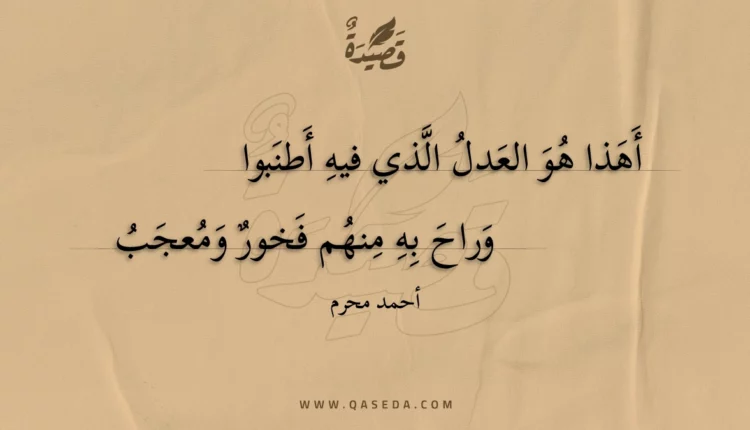 قَصِيدَةٌ
أَهَذا هُوَ العَدلُ الَّذي فيهِ أَطنَبوا
وَراحَ بِهِ مِنهُم فَخورٌ وَمُعجَبُ
أحمد محرم
WWW.QASEDA.COM